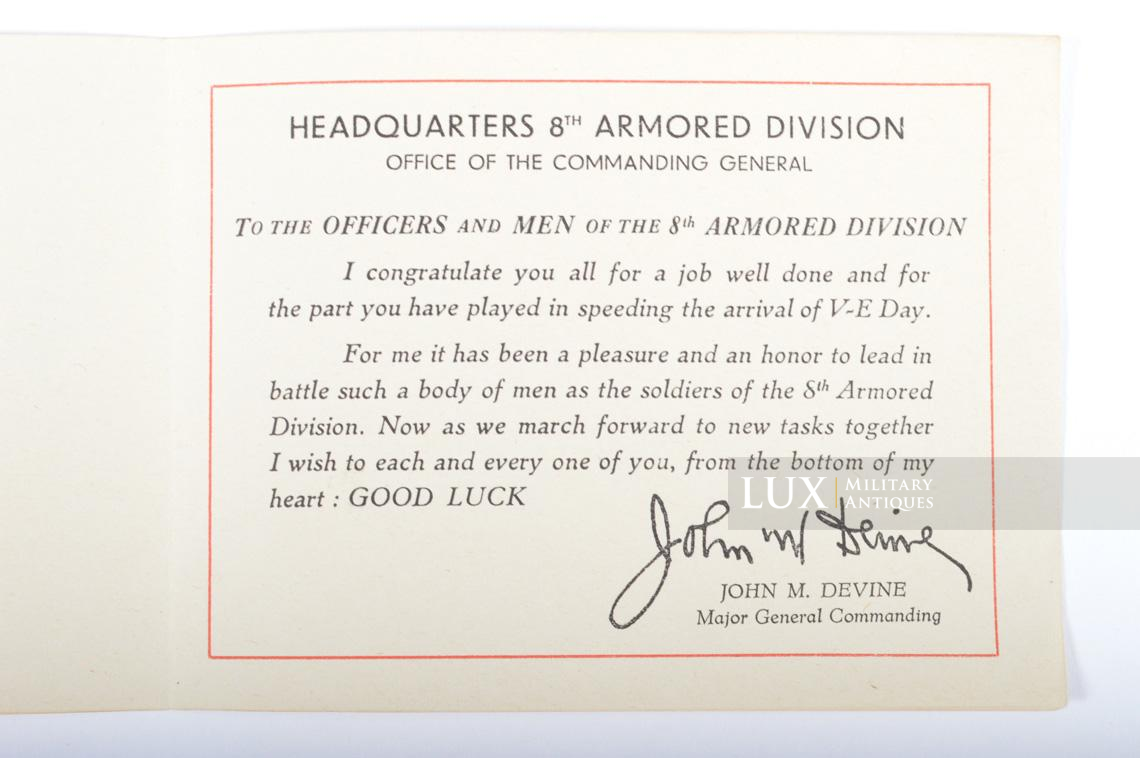 HEADQUARTERS 8TH ARMORED DIVISION
OFFICE OF THE COMMANDING GENERAL
TO THE OFFICERS AND MEN OF THE 8th ARMORED DIVISION
I congratulate you all for a job well done and for
the part you have played in speeding the arrival of V-E Day.
For me it has been a pleasure and an honor to lead in
battle such a body of men as the soldiers of the 8th Armored
Division. Now as we march forward to new tasks together
I wish to each and every one of you, from the bottom of my
heart : GOOD LUCK
LUX MILITARY
ANTIQUES
John M Devine
JOHN M. DEVINE
Major General Commanding